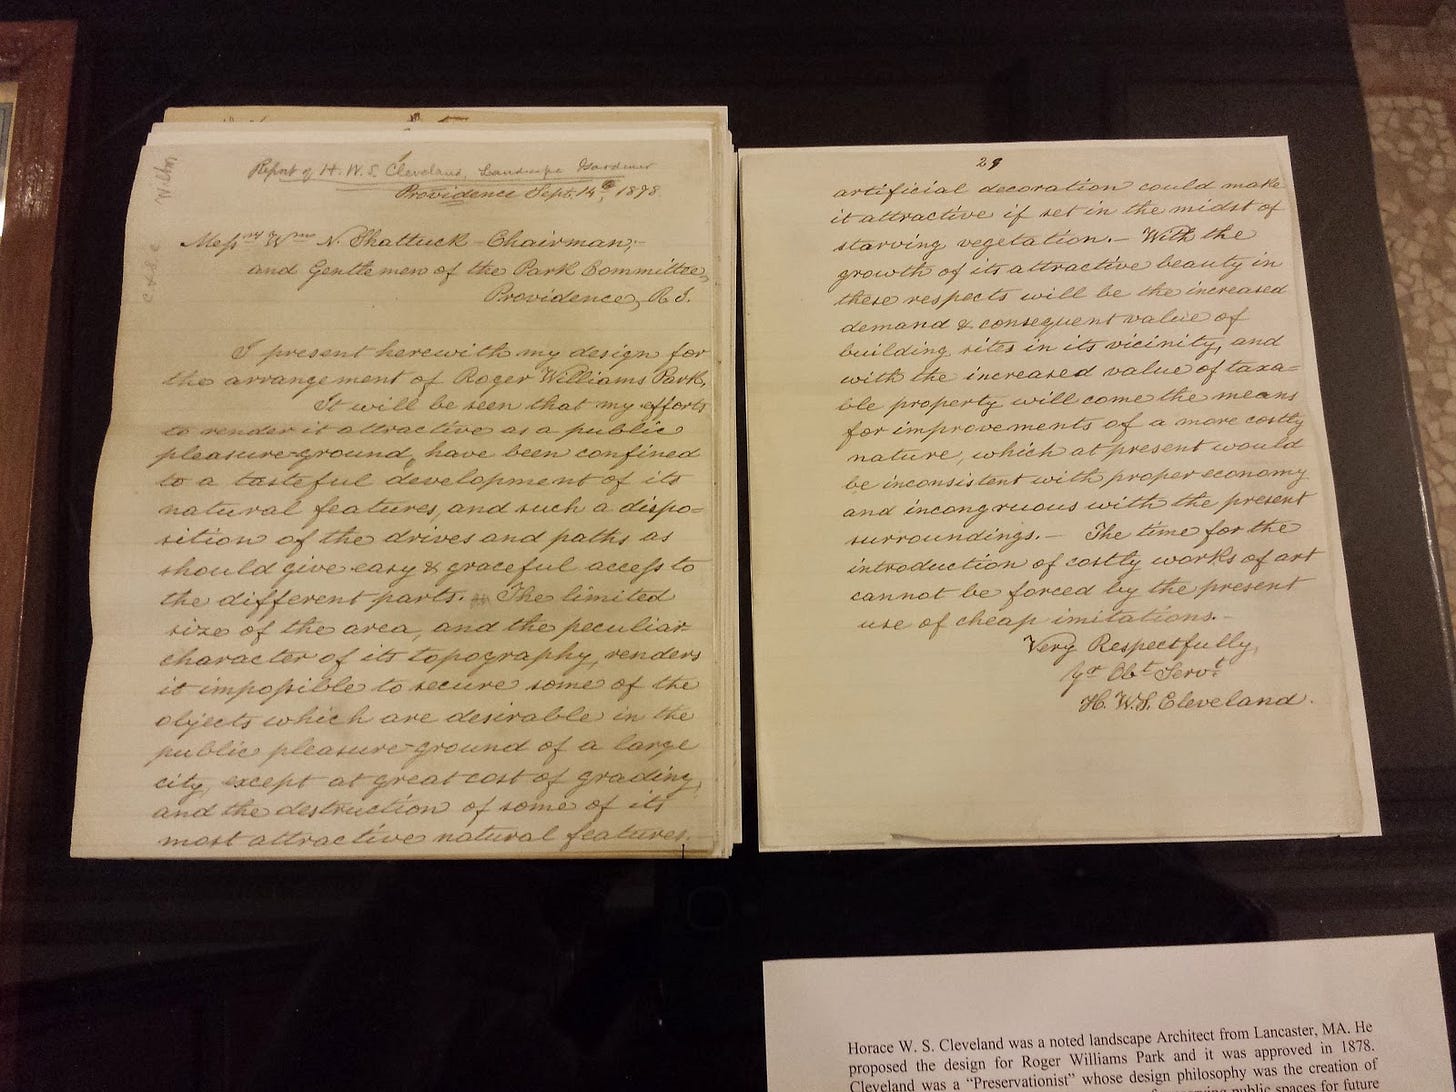 Report of H. W. S. Cleveland, Landscape Gardener
Providence Sept. 14th, 1878
Messrs Wm N. Shattuck – Chairman,–
and Gentlemen of the Park Committee,
Providence, R. I.
I present herewith my design for
the arrangement of Roger Williams Park.
It will be seen that my efforts
to render it attractive as a public
pleasure-ground, have been confined
to a tasteful development of its
natural features, and such a dispo=
sition of the drives and paths as
should give easy & graceful access to
the different parts. The limited
size of the area, and the peculiar
character of its topography, renders
it impossible to secure some of the
objects which are desirable in the
public pleasure-ground of a large
city, except at great cost of grading,
and the destruction of some of its
most attractive natural features.
29
artificial decoration could make
it attractive if set in the midst of
starving vegetation.– With the
growth of its attractive beauty in
these respects will be the increased
demand & consequent value of
building sites in its vicinity, and
with the increased value of taxa=
ble property will come the means
for improvements of a more costly
nature, which at present would
be inconsistent with proper economy
and incongruous with the present
surroundings.– The time for the
introduction of costly works of art
cannot be forced by the present
use of cheap imitations.–
Very Respectfully,
Yr Obt Servt
H. W. S. Cleveland.
Horace W. S. Cleveland was a noted landscape Architect from Lancaster, MA. He
proposed the design for Roger Williams Park and it was approved in 1878.
Cleveland was a “Preservationist” whose design philosophy was the creation of
public spaces for future